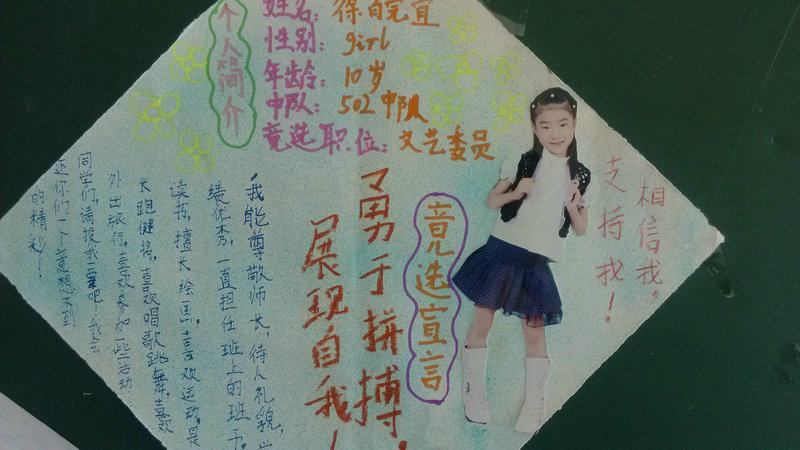 个人简介
姓名：徐白完宜
性别：girl
年龄：10岁
中队：502中队
竞选职位：文艺委员
相信我，
支持我！
竞选宣言
勇于拼搏，
展现自我！
我能尊敬师长，待人礼貌，
绩优秀，一直担任班上的班干。
读书，擅长绘画，喜欢运动，是
长跑健将，喜欢唱歌跳舞，喜欢
外出旅行，喜欢参加一些活动。
同学们，请投我一票吧！我会
还你们一个意想不到
的精彩！